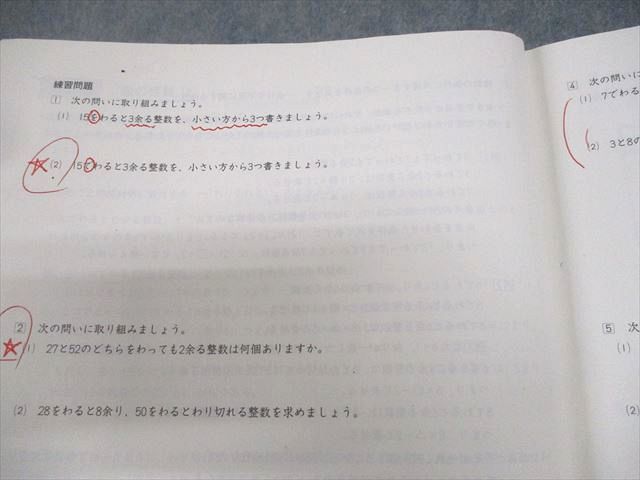 練習問題
1 次の問いに取り組みましょう。
(1) 15をわると3余る整数を、小さい方から3つ書きましょう。
(2) 15でわると3余る整数を、小さい方から3つ書きましょう。
2 次の問いに取り組みましょう。
(1) 27と52のどちらをわっても2余る整数は何個ありますか。
(2) 28をわると8余り、50をわるとわり切れる整数を求めましょう。
4 次の問いに
(1) 7でわる
(2) 3と8の
5 次
(1)
(2)